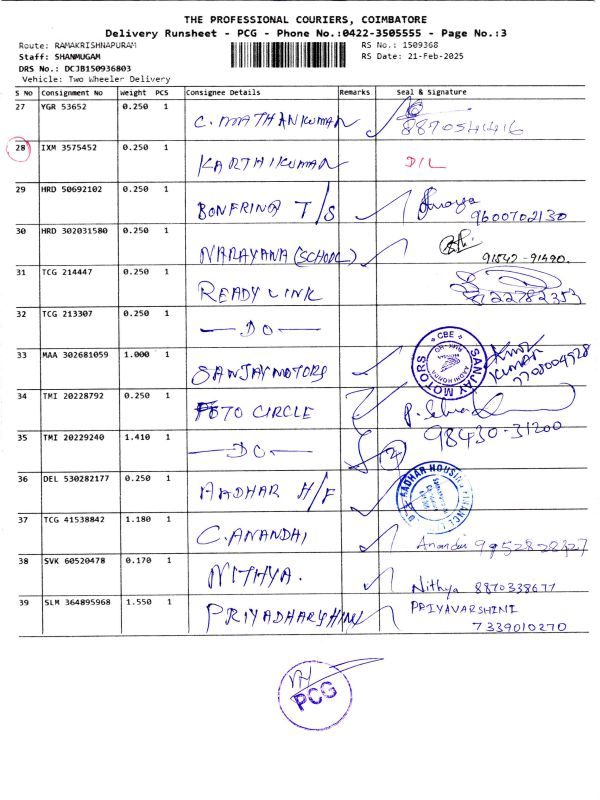 THE PROFESSIONAL COURIERS, COIMBATORE
Delivery Runsheet - PCG - Phone No.:0422-3505555 - Page No.:3
Route: RAMAKRISHNAPURAM RS No.: 1509368
Staff: SHANMUGAM RS Date: 21-Feb-2025
DRS No.: DCJB150936803
Vehicle: Two Wheeler Delivery
S NO Consignment No Weight PCS Consignee Details Remarks Seal & Signature
27 YGR 53652 0.250 1 C. MATHANKUMAR 8870541416
28 IXM 3575452 0.250 1 KARTHIKUMAR D/L
29 HRD 50692102 0.250 1 BONFRING T/S 9600702130
30 HRD 302031580 0.250 1 NARAYANA (SCHOOL) 91542-91490.
31 TCG 214447 0.250 1 READY LINK 8122782353
32 TCG 213307 0.250 1 —DO—
33 MAA 302681059 1.000 1 SANJAY MOTORS CBE SANJAY MOTORS KUMAR
34 TMI 20228792 0.250 1 FOTO CIRCLE
35 TMI 20229240 1.410 1 —DO— 2 98430-31200
36 DEL 530282177 0.250 1 AADHAR H/F AADHAR HOUSING FINANCE
37 TCG 41538842 1.180 1 C. ANANDHI 9952828327
38 SVK 60520478 0.170 1 NITHYA. Nithya 8870338677
39 SLM 364895968 1.550 1 PRIYADHARSHINI PRIYAVARSHINI
7339010270
PCG